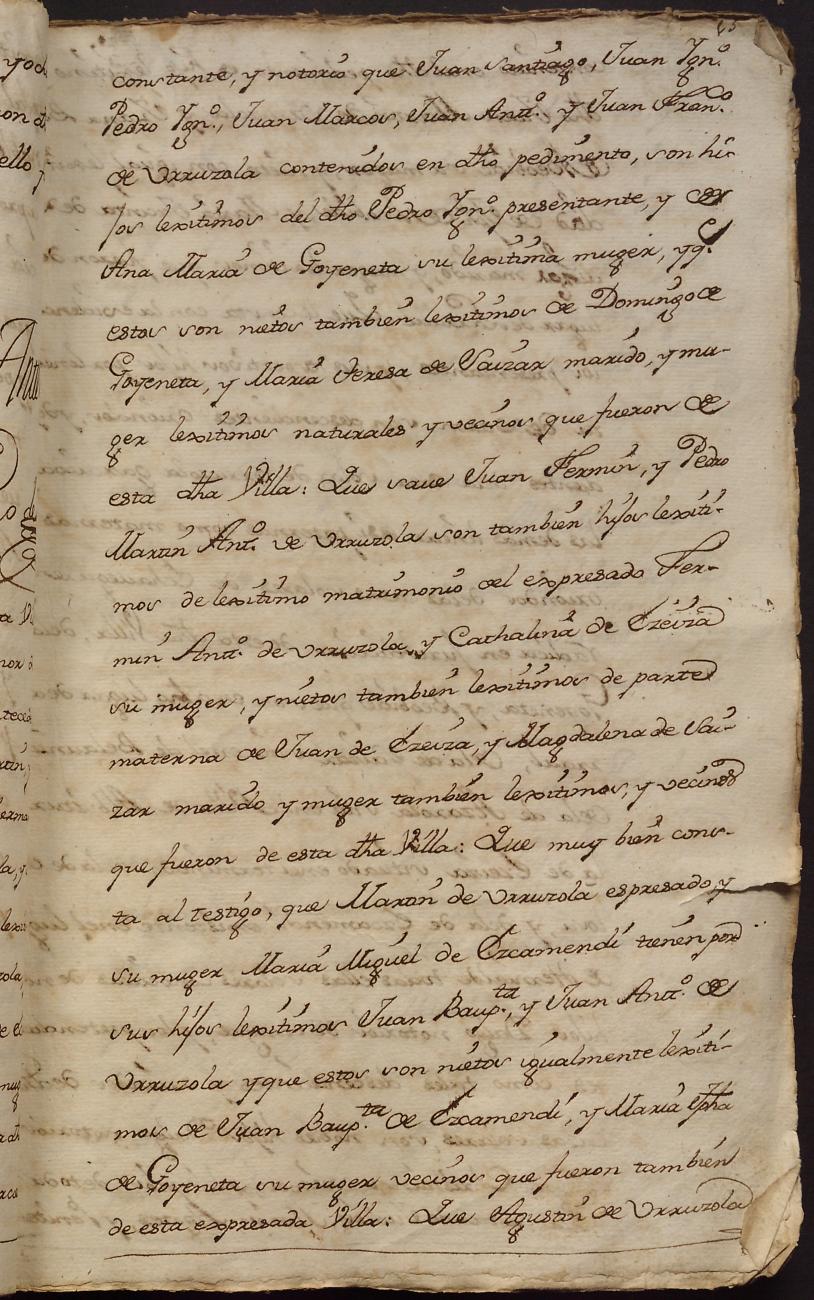 constante, y notorio que Juan Santiago, Juan Ygn.º
Pedro Ygn.º, Juan Marcos, Juan Antt.º y Juan Fran.co
de Urruzola contenidos en dho pedimento, son hi-
jos lexitimos del dho Pedro Ygn.º presentante, y de
Ana Maria de Goyeneta su lexitima muger, y q.e
estos son nietos tambien lexitimos de Domingo de
Goyeneta, y Maria Teresa de Saizar marido, y mu-
ger lexitimos naturales y vecinos que fueron de
esta dha Villa: Que save Juan Fermin, y Pedro
Martin Antt.º de Urruzola son tambien hijos lexiti-
mos de lexitimo matrimonio del expresado Fer-
min Antt.º de Urruzola, y Cathalina de Ezeiza
su muger, y nietos tambien lexitimos de parte
materna de Juan de Ezeiza, y Magdalena de Sai-
zar marido y muger tambien lexitimos, y vecinos
que fueron de esta dha Villa: Que muy bien cons-
ta al testigo, que Martin de Urruzola espresado, y
su muger Maria Miguel de Ezcamendi tienen por
sus hijos lexitimos Juan Baup.ta, y Juan Antt.º de
Urruzola y que estos son nietos igualmente lexiti-
mos de Juan Baup.ta de Ezcamendi, y Maria Jpha
de Goyeneta su muger vecinos que fueron tambien
de esta expresada Villa: Que Agustin de Urruzola